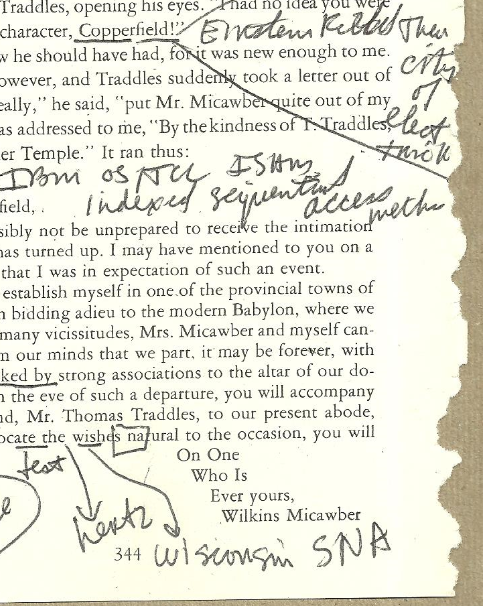 Traddles, opening his eyes. "I had no idea you were
character, Copperfield!"
Einstein
Then
w he should have had, for it was new enough to me.
city
owever, and Traddles suddenly took a letter out of
of
eally," he said, "put Mr. Micawber quite out of my
as addressed to me, "By the kindness of T. Traddles,
elect
er Temple." It ran thus:
IBM OS
indexed sequential
access
metho
field, .
sibly not be unprepared to receive the intimation
as turned up. I may have mentioned to you on a
that I was in expectation of such an event.
establish myself in one of the provincial towns of
n bidding adieu to the modern Babylon, where we
many vicissitudes, Mrs. Micawber and myself can-
n our minds that we part, it may be forever, with
ked by strong associations to the altar of our do-
n the eve of such a departure, you will accompany
nd, Mr. Thomas Traddles, to our present abode,
ocate the wishes natural to the occasion, you will
On One
test
Who Is
Ever yours,
Wilkins Micawber
hertz
344 Wisconsin SNA